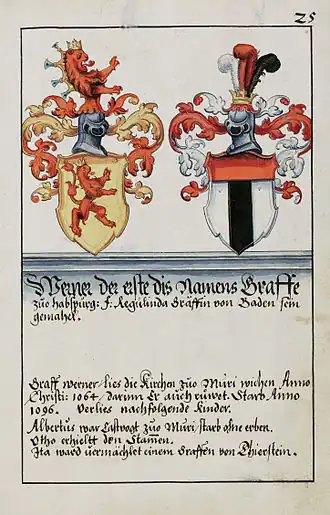 25
Werner der erste dis Namens Graffe
zuo habspurg: F: Regulinda Gräffin von Baden sein
gemahel.
Graff Werner lies die Kirchen zuo Muri wichen Anno
Christi: 1064 / darum Er auch ruwet. Starb Anno
1096. Verlies nachfolgende Kinder.
Albertus war Castvogt zuo Muri / starb ohne erben.
Otho erhieltt den Stamen.
Ita ward vermächlet einem Graffen von Thierstein.